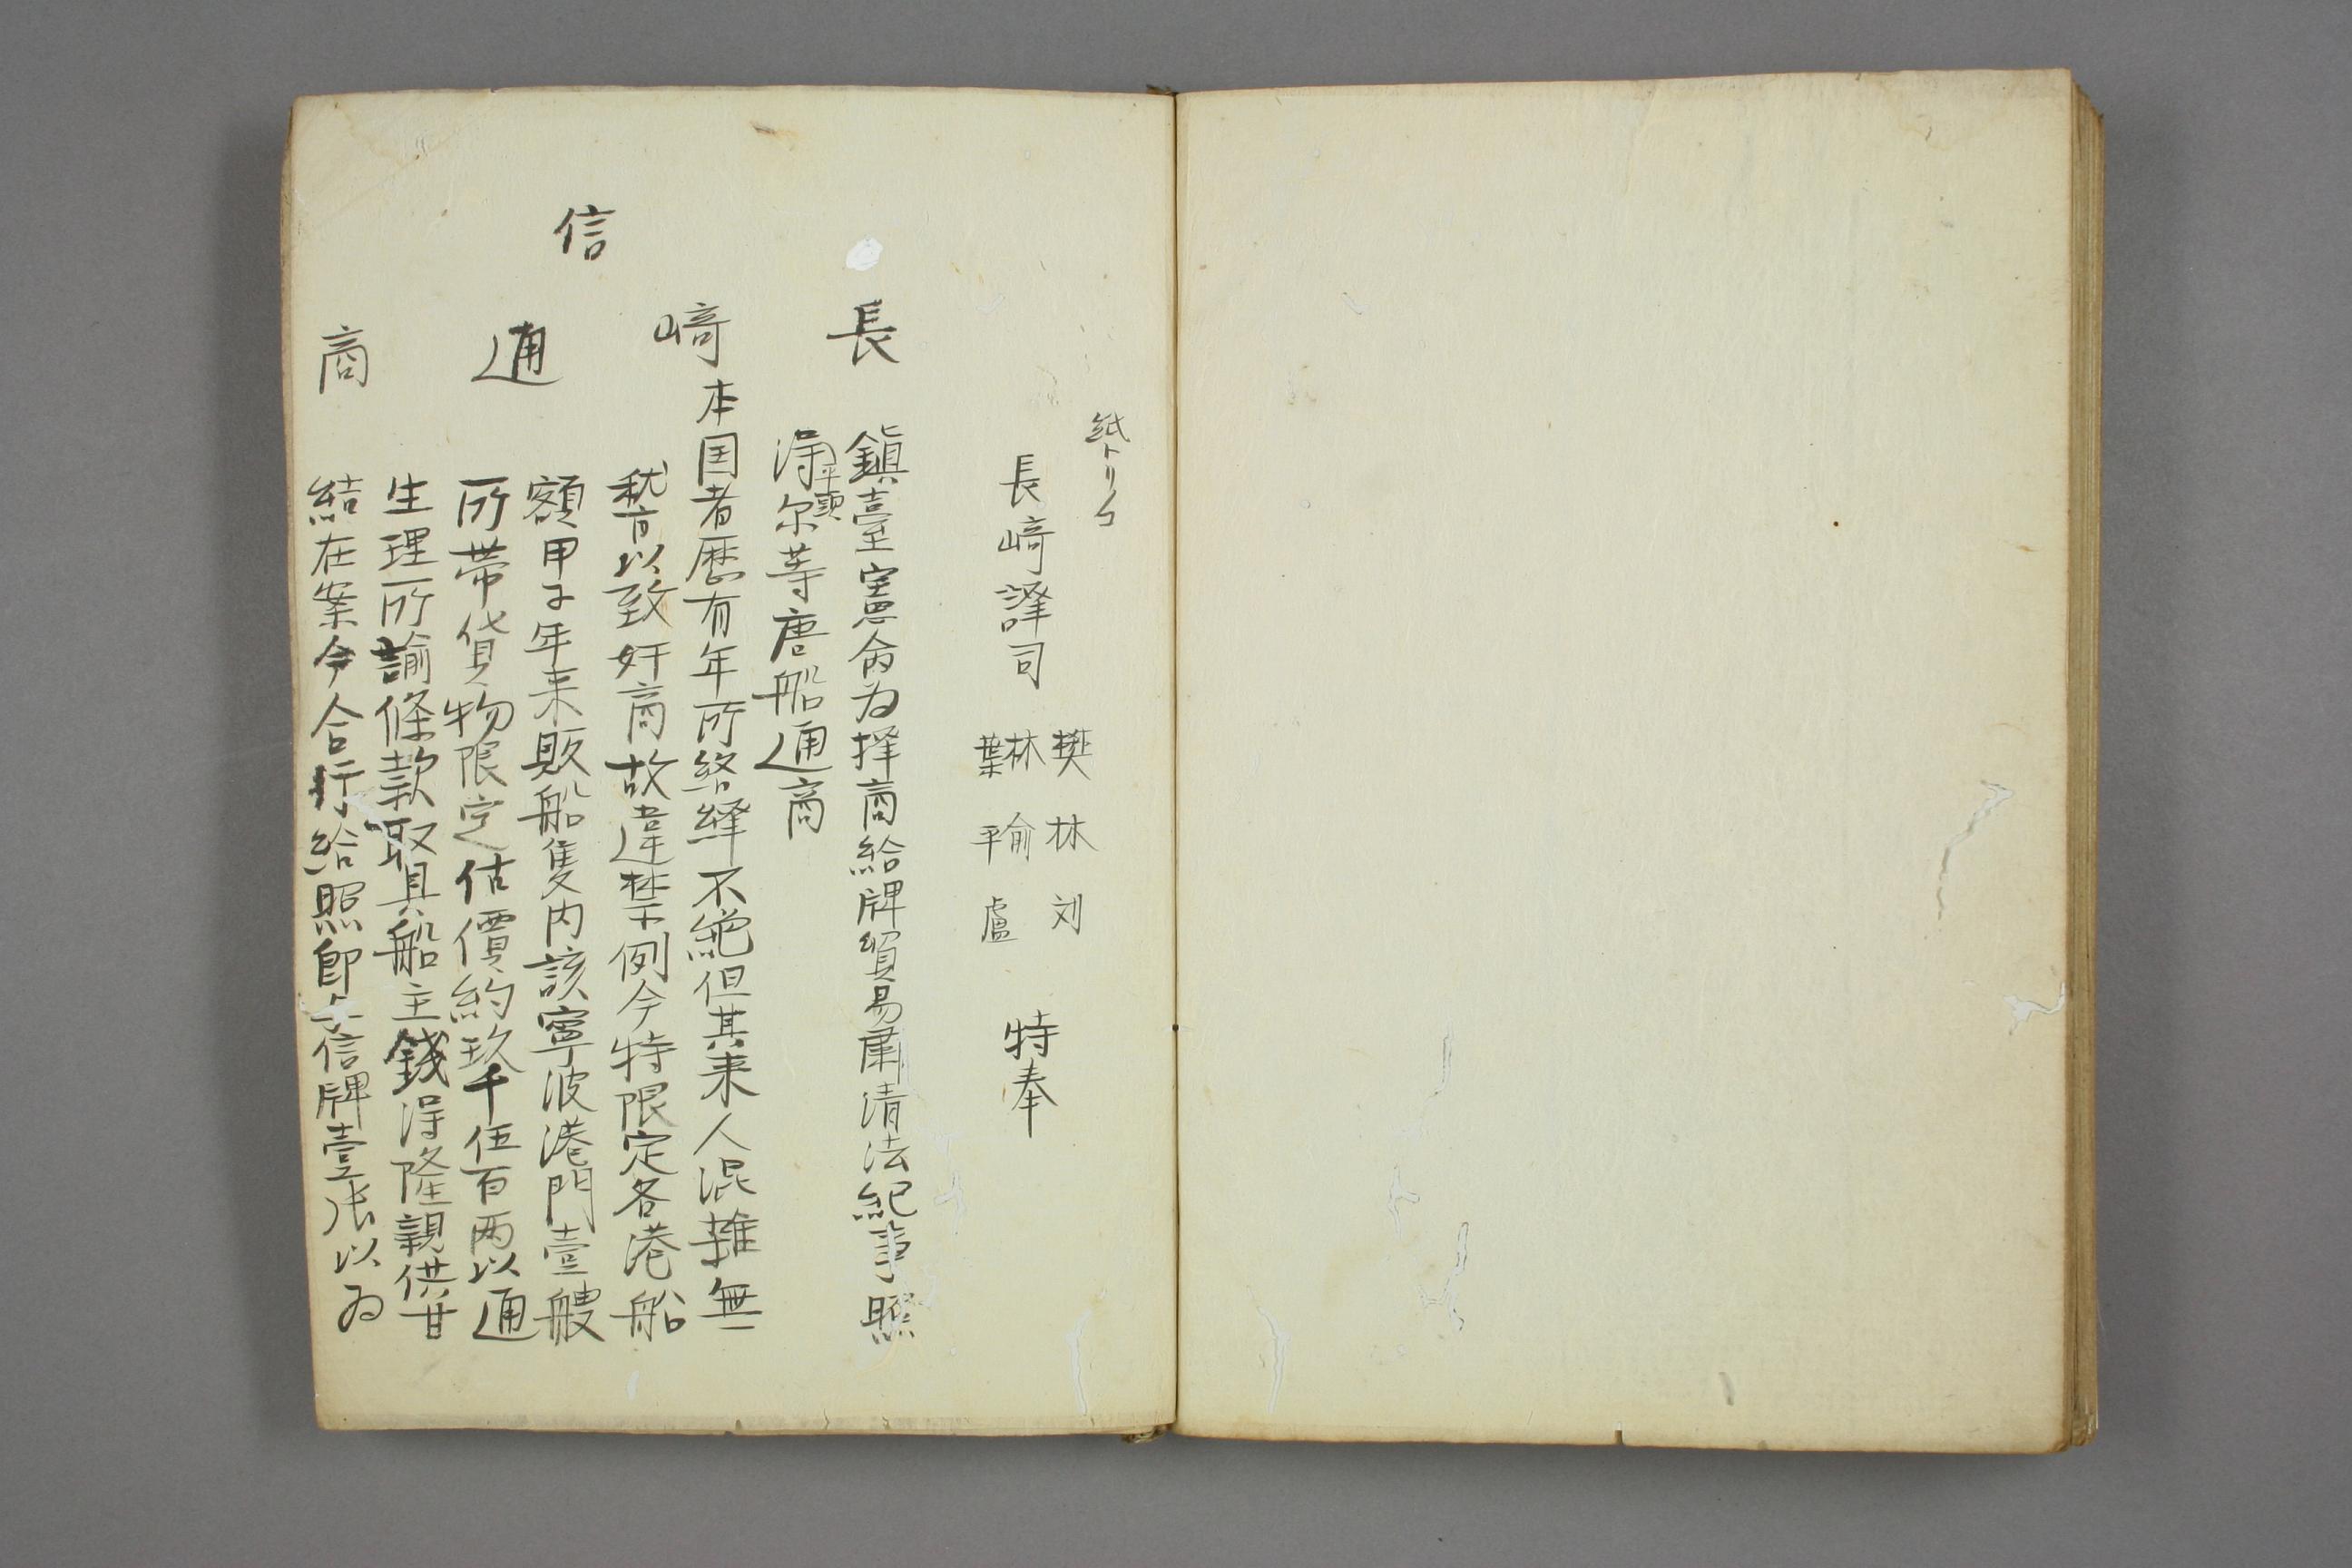 紙トリノコ
長﨑譯司
樊 林 刘
林 俞
葉 平 盧
特奉
長
鎮臺憲命為择商給牌貿易肅清法紀事照
得尔等唐船通商
平頭
﨑
本囯者歴有年所絡繹不絶但其来人混雜無
稽以致奸商故違禁例今特限定各港船
信
通
額甲子年来販船隻内該寧波港門壹艘
所带貨物限定估價約玖千伍百两以通
生理所諭條款取具船主錢得隆親供甘
商
結在案今合行給照即与信牌壹张以为